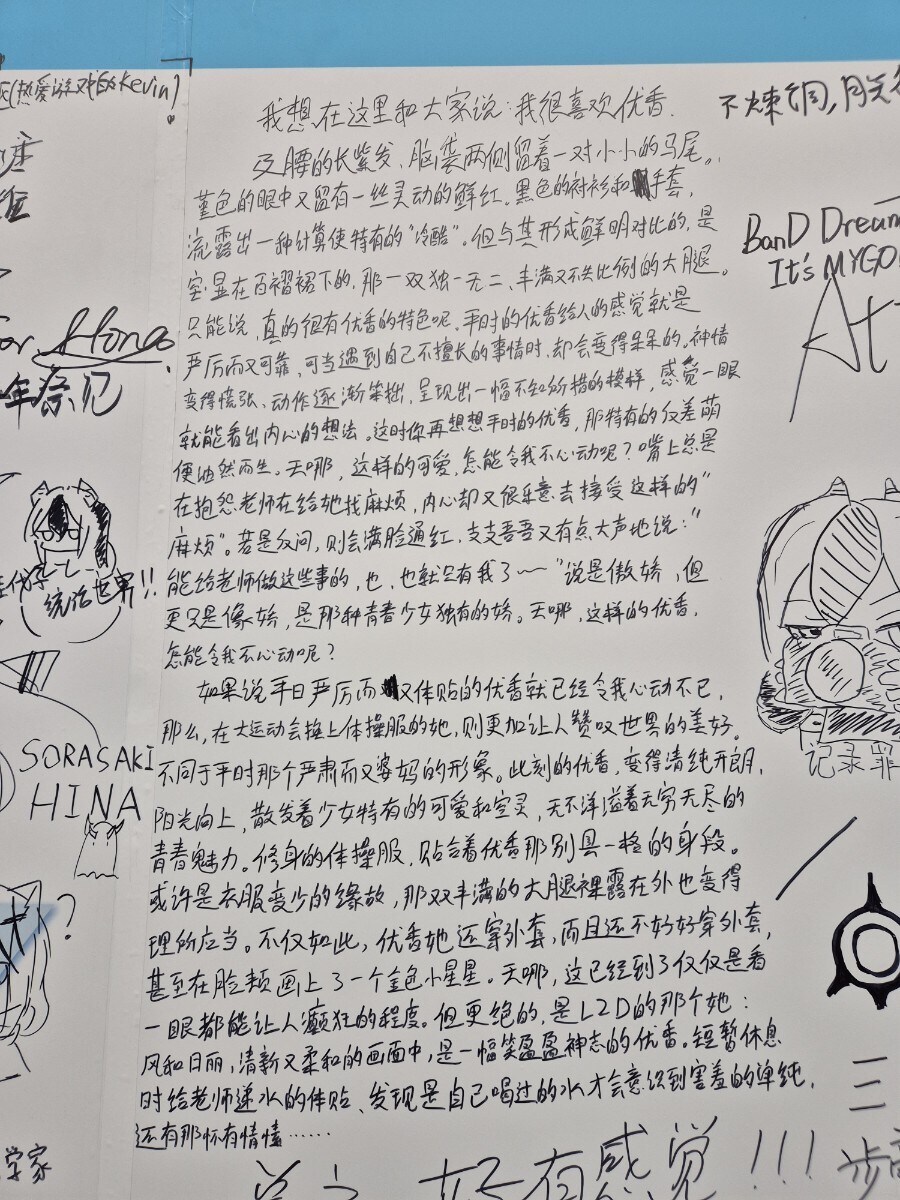 (热爱游戏的Kevin)
我想在这里和大家说:我很喜欢优香.
及腰的长紫发、脑袋两侧留着一对小小的马尾。
堇色的眼中又留有一丝灵动的鲜红.黑色的衬衫和手套,
流露出一种计算使特有的“冷酷”。但与其形成鲜明对比的,是
显在百褶裙下的,那一双独一无二、丰满又不失比例的大腿。
只能说,真的很有优香的特色呢.平时的优香给人的感觉就是
严厉而又可靠,可当遇到自己不擅长的事情时,却会变得呆呆的,神情
变得慌张、动作逐渐笨拙,呈现出一幅不知所措的模样,感觉一眼
就能看出内心的想法。这时你再想想平时的优香,那特有的反差萌
便油然而生。天哪,这样的可爱,怎能令我不心动呢?嘴上总是
在抱怨老师在给她找麻烦,内心却又很乐意去接受这样的“
麻烦”。若是反问,则会满脸通红,支支吾吾又有点大声地说:“
能给老师做这些事的,也、也就只有我了～”说是傲娇,但
更又是像娇,是那种青春少女独有的娇。天哪,这样的优香,
怎能令我不心动呢?
如果说平日严厉而又体贴的优香就已经令我心动不已,
那么,在大运动会换上体操服的她,则更加让人赞叹世界的美好.
不同于平时那个严肃而又婆妈的形象。此刻的优香,变得清纯开朗,
阳光向上,散发着少女特有的可爱和空灵,无不洋溢着无穷无尽的
青春魅力。修身的体操服,贴合着优香那别具一格的身段。
或许是衣服变少的缘故,那双丰满的大腿裸露在外也变得
理所应当。不仅如此,优香她还穿外套,而且还不好好穿外套,
甚至在脸颊画上了一个金色小星星。天哪,这已经到了仅仅是看
一眼都能让人癫狂的程度。但更绝的,是L2D的那个她:
风和日丽,清新又柔和的画面中,是一幅笑盈盈神志的优香。短暂休息
时给老师递水的体贴、发现是自己喝过的水才会意识到害羞的单纯.
还有那怀有情愫……
好有感觉!!!
BanD Dream
It's MYGO
At
for Hono
年祭记
统治世界!!
SORASAKI
HINA
?
学家
记录罪
三
步